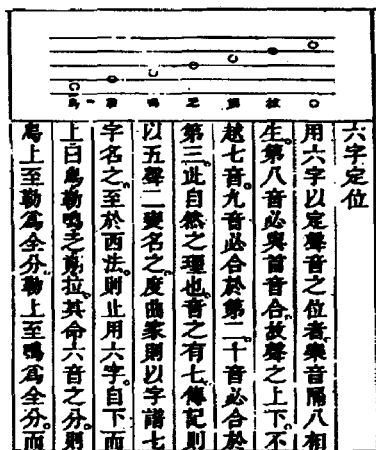 六字定位
用六字以定聲音之位者樂音隔八相
生。第八音必與首音合。故聲之上下。不
越七音。九音必合於第二。十音必合於
第三。此自然之理也。音之有七。傳記則
以五聲二變名之。度曲家則以字譜七
字名之。至於西法。則止用六字。自下而
上曰烏勒鳴乏朔拉。其命六音之分。則
烏上至勒爲全分。勒上至鳴爲全分。而
拉
朔
乏
鳴
勒
烏